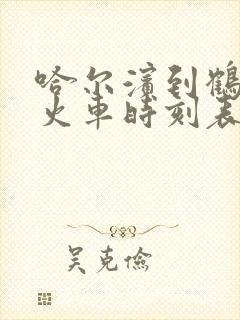 哈尔滨到鹤
火车时刻表
吴克俭